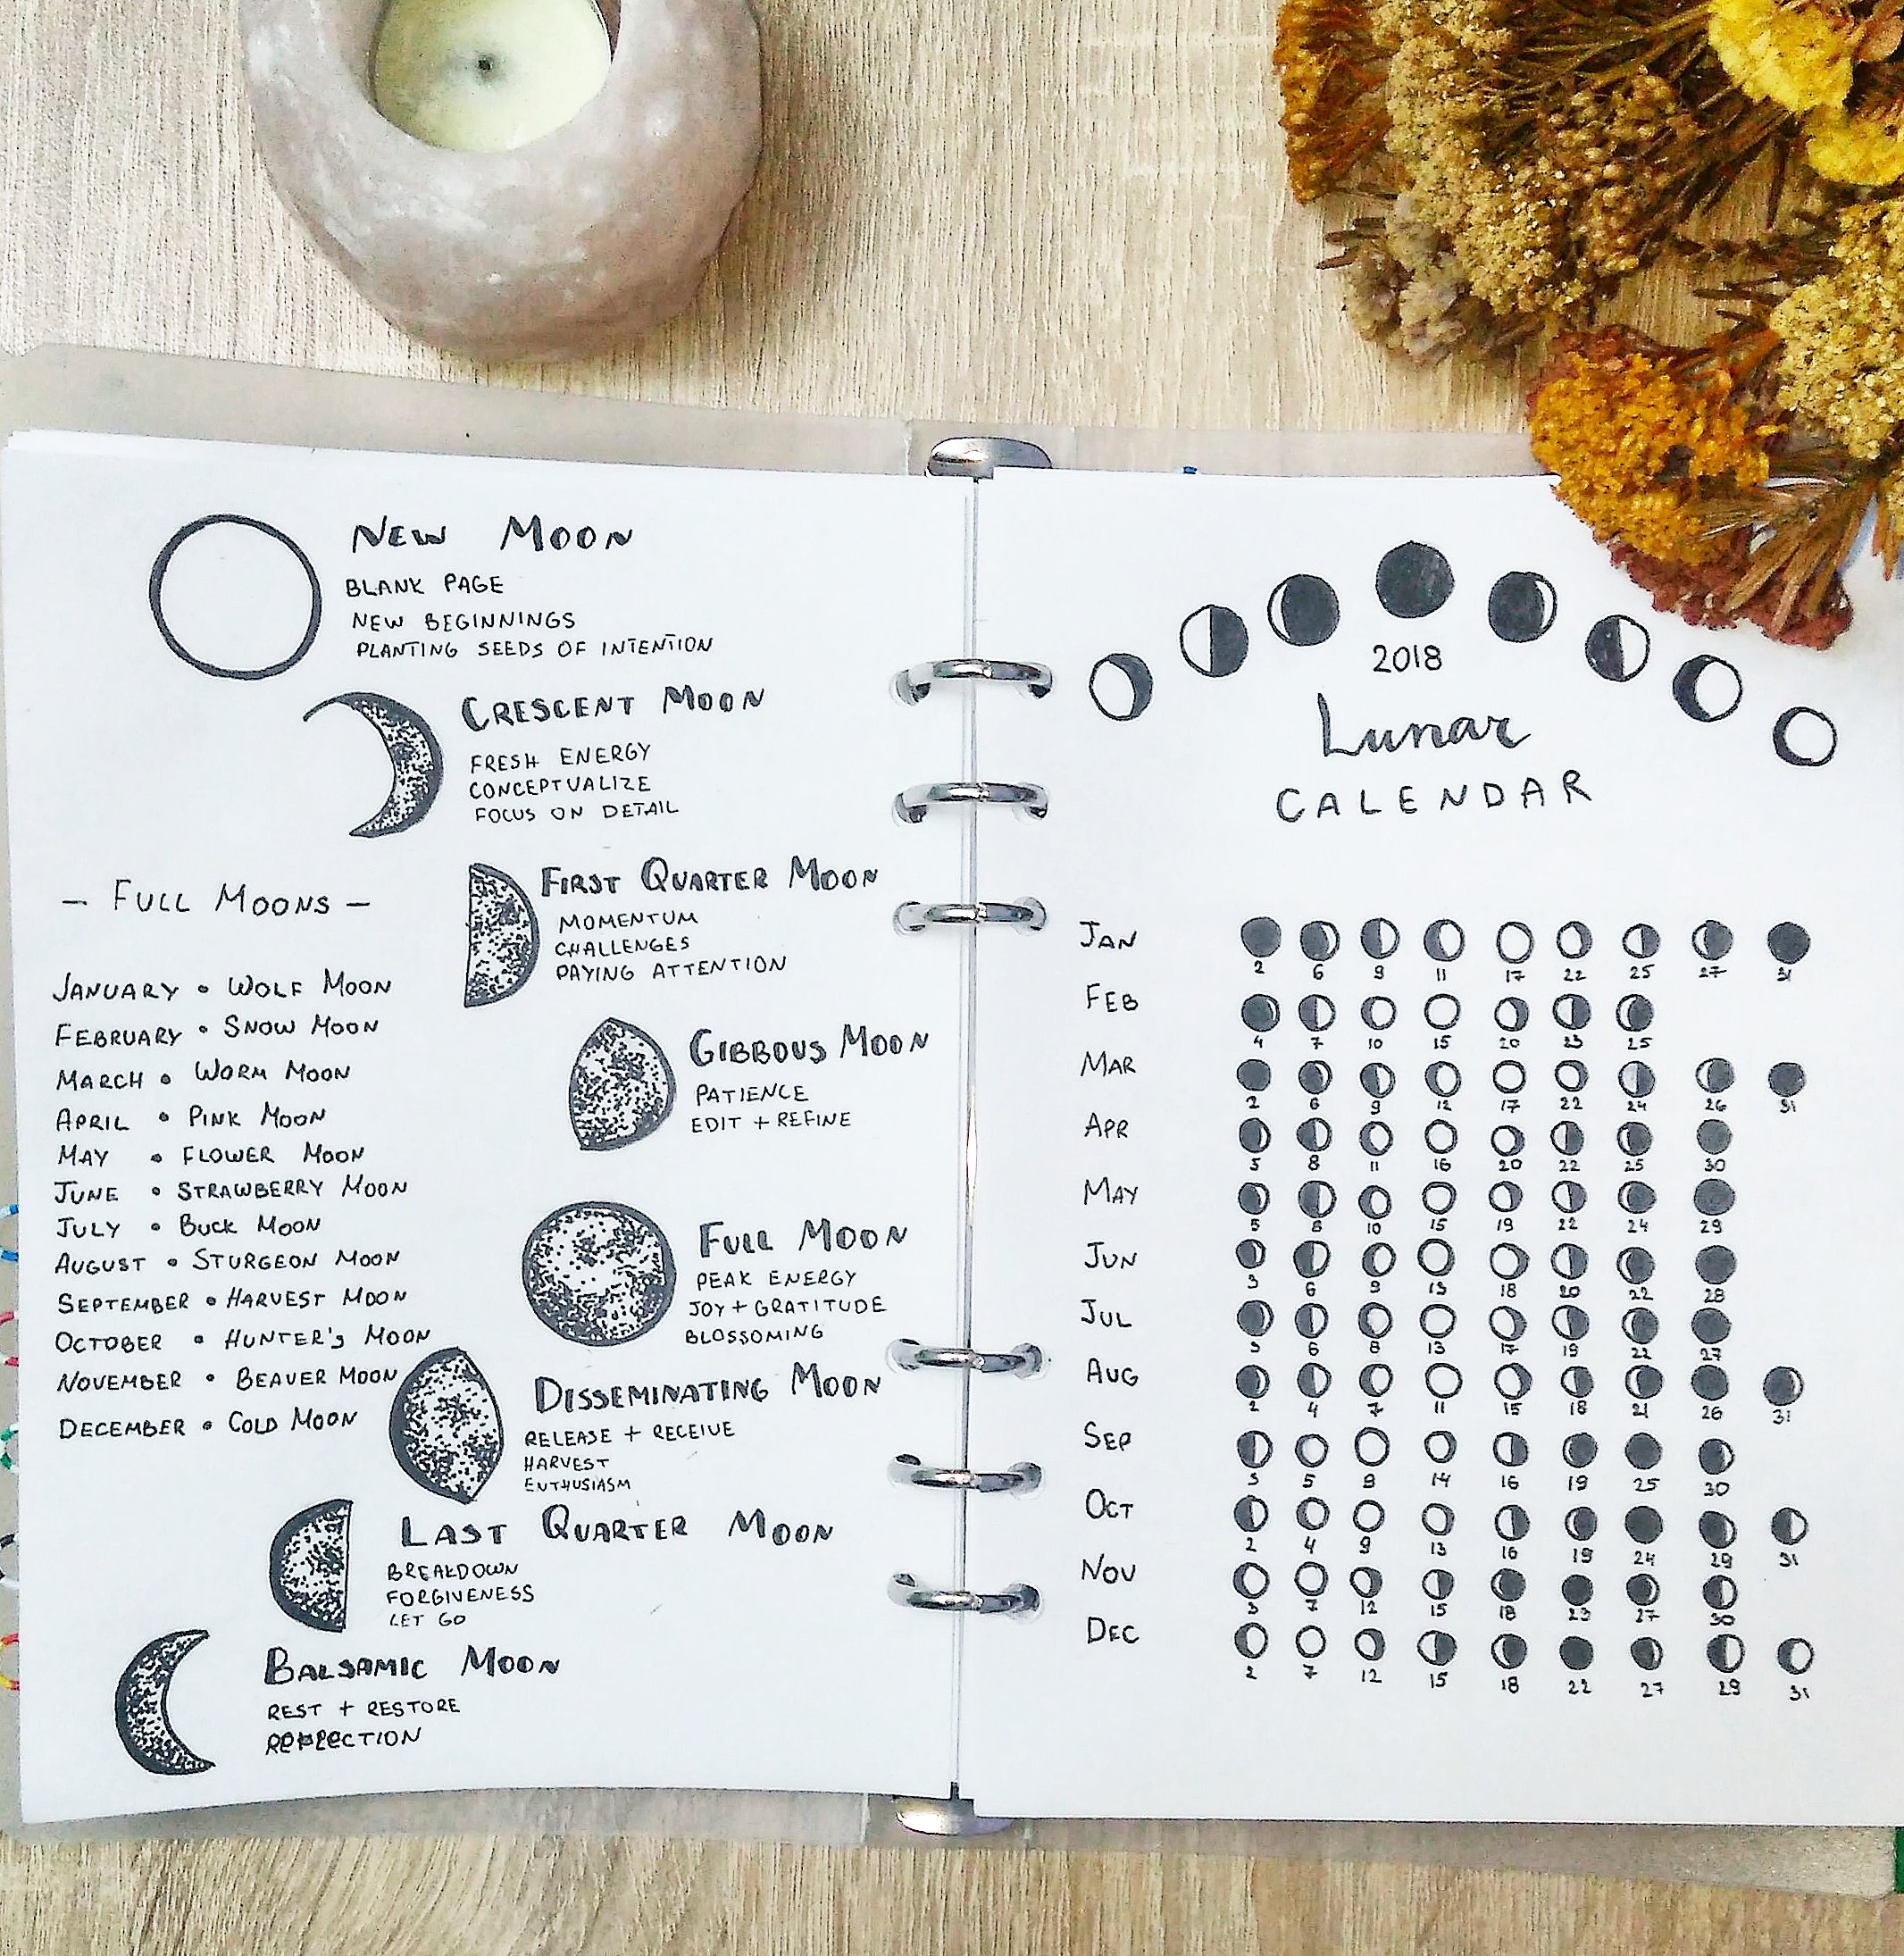 NEW MOON
BLANK PAGE
NEW BEGINNINGS
PLANTING SEEDS OF INTENTION
CRESCENT MOON
FRESH ENERGY
CONCEPTUALIZE
FOCUS ON DETAIL
FIRST QUARTER MOON
MOMENTUM
CHALLENGES
PAYING ATTENTION
GIBBOUS MOON
PATIENCE
EDIT + REFINE
FULL MOON
PEAK ENERGY
JOY + GRATITUDE
BLOSSOMING
DISSEMINATING MOON
RELEASE + RECEIVE
HARVEST
ENTHUSIASM
LAST QUARTER MOON
BREAKDOWN
FORGIVENESS
LET GO
BALSAMIC MOON
REST + RESTORE
REFLECTION
– FULL MOONS –
JANUARY • WOLF MOON
FEBRUARY • SNOW MOON
MARCH • WORM MOON
APRIL • PINK MOON
MAY • FLOWER MOON
JUNE • STRAWBERRY MOON
JULY • BUCK MOON
AUGUST • STURGEON MOON
SEPTEMBER • HARVEST MOON
OCTOBER • HUNTER'S MOON
NOVEMBER • BEAVER MOON
DECEMBER • COLD MOON
2018
Lunar
CALENDAR
JAN
2 6 9 11 17 22 25 27 31
FEB
4 7 10 15 20 23 25
MAR
2 6 9 12 17 22 24 26 31
APR
5 8 11 16 20 22 25 30
MAY
5 8 10 15 19 22 24 29
JUN
3 6 9 13 18 20 22 28
JUL
3 6 8 13 17 19 22 27
AUG
2 4 7 11 15 18 21 26 31
SEP
3 5 9 14 16 19 25 30
OCT
2 4 9 13 16 19 24 29 31
NOV
3 7 12 15 18 23 27 30
DEC
2 7 12 15 18 22 27 29 31